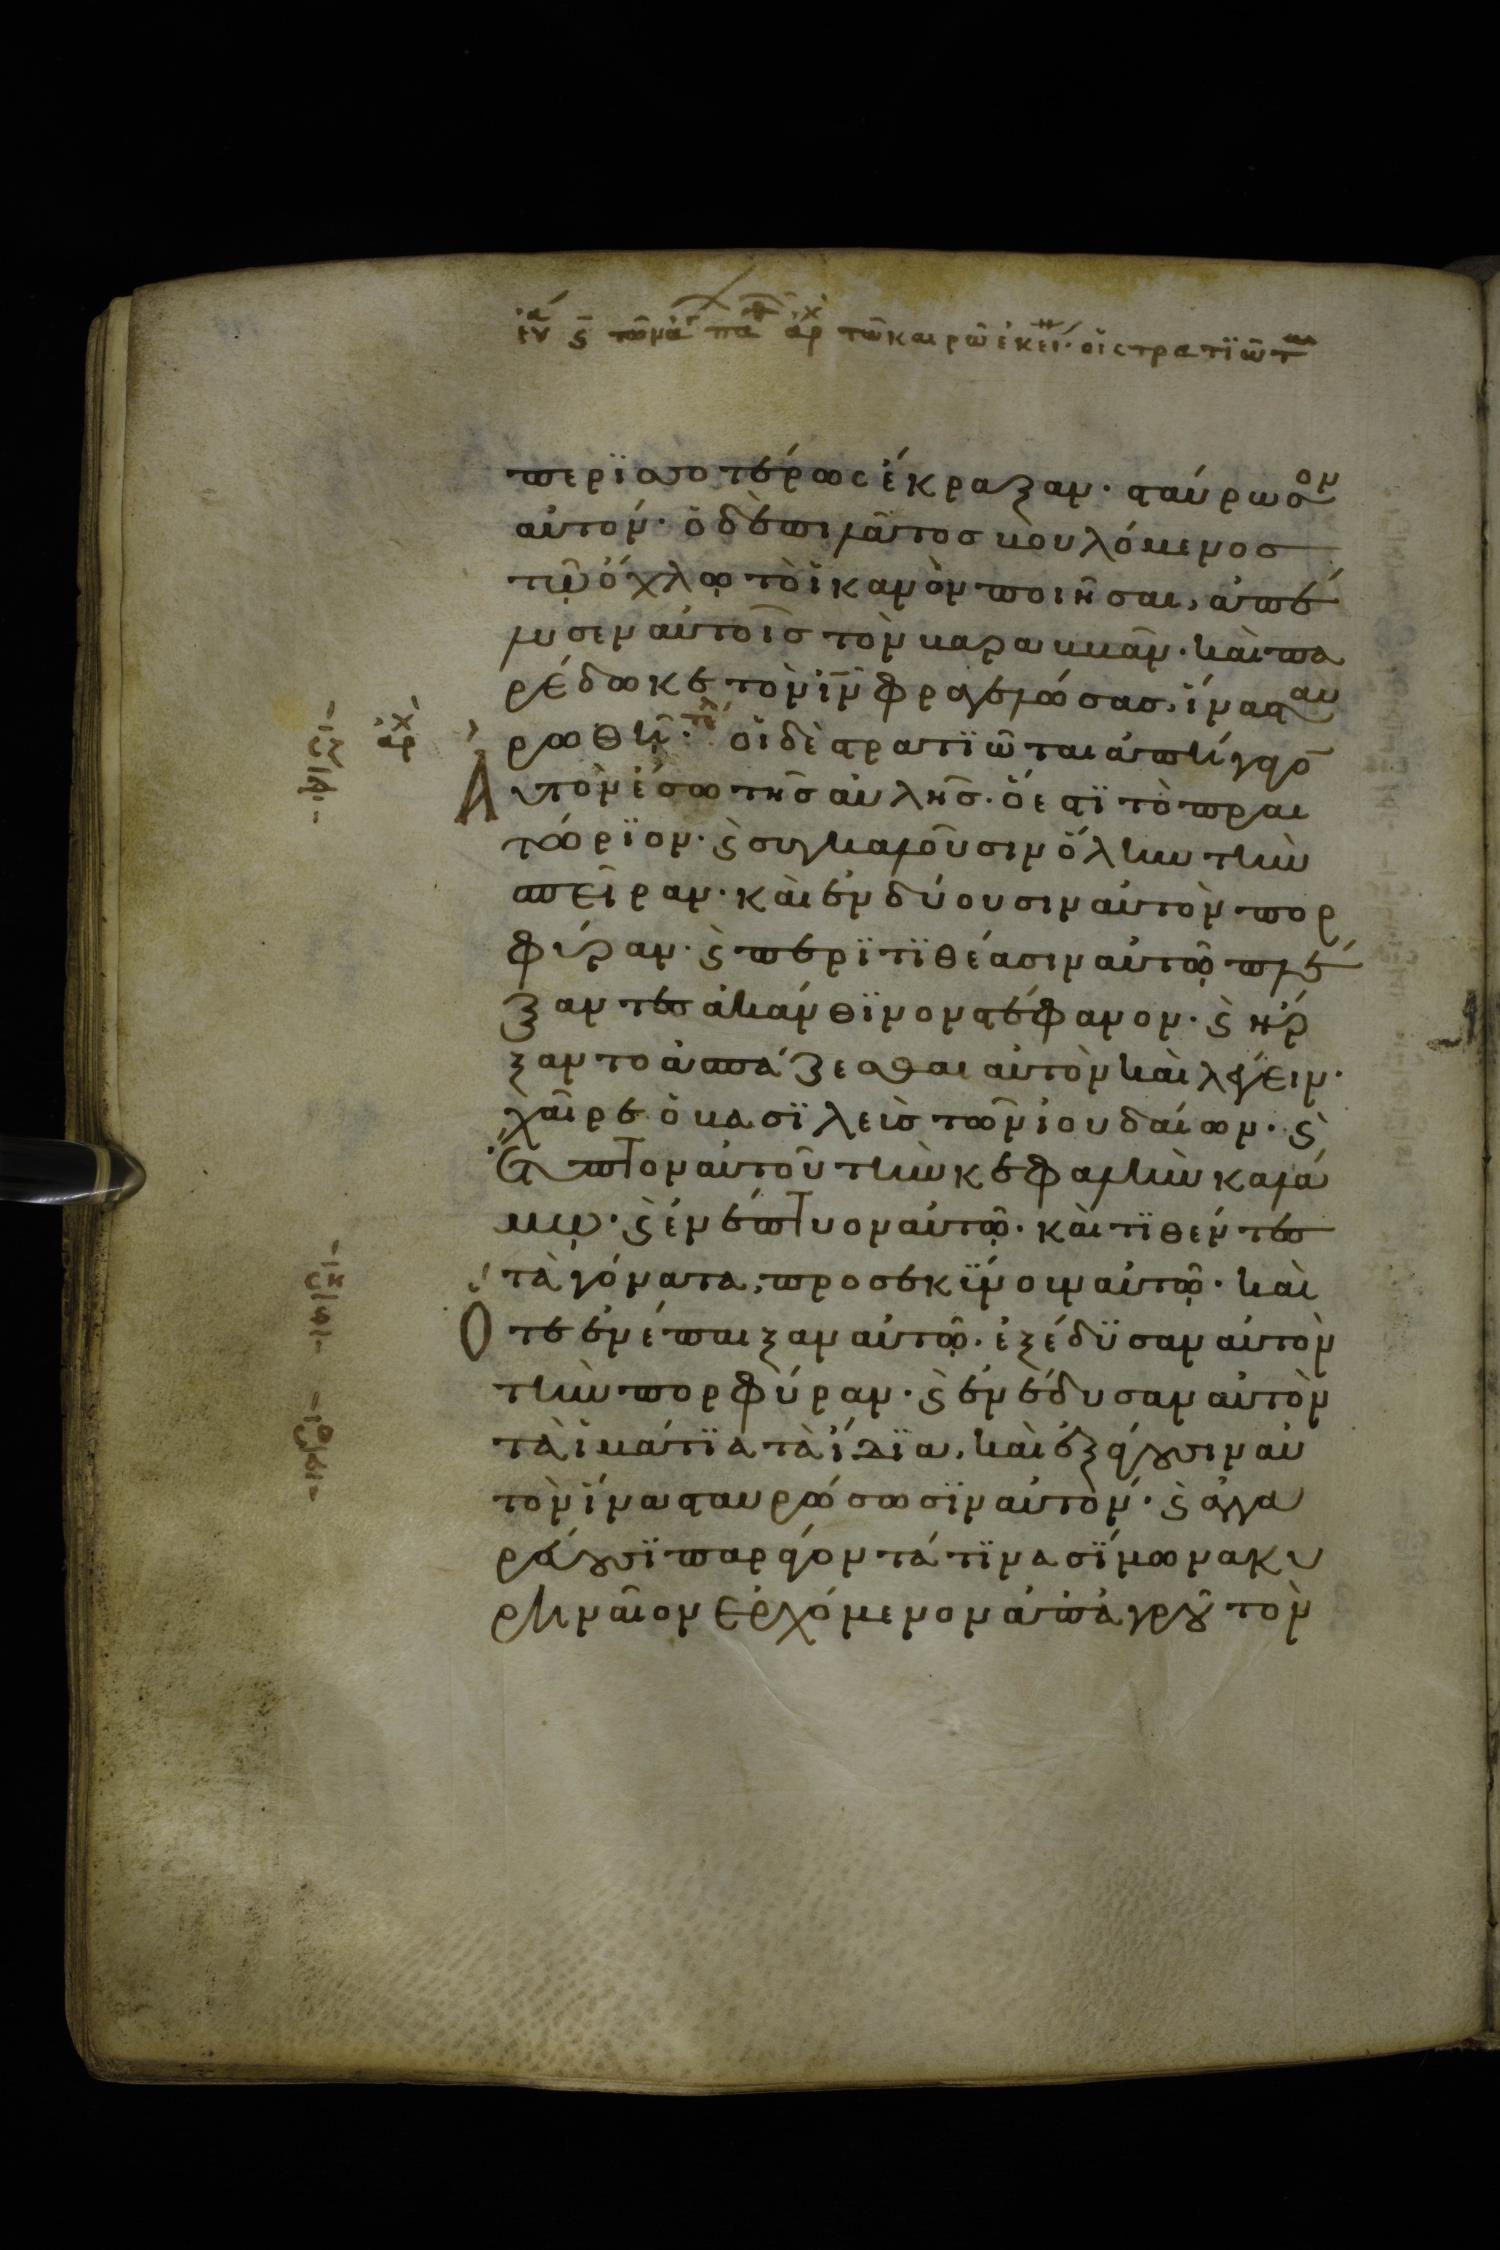 τῶ καιρῶ ἐκεί· οἱ στρατϊῶτ
περϊσσοτέρως ἔκραξαν· σταύρωσον
αὐτόν· ὁ δὲ πιλᾶτος βουλόμενος
τῷ ὄχλῳ τὸ ἱκανὸν ποιῆσαι, ἀπέ
λυσεν αὐτοῖς τὸν βαραββᾶν· καὶ πα
ρέδωκε τὸν ιν φραγελώσας, ἵνα σταυ
ρωθῆ· οἱ δὲ στρατϊῶται ἀπήγαγον
αυτὸν ἔσω τῆς αὐλῆς· ὅ εστϊ τὸ πραι
τώρϊον· ϗ συγκαλοῦσιν ὅλην τὴν
σπεῖραν· καὶ ἐνδύουσιν αὐτὸν πορ
φύραν· ϗ περϊτϊθέασιν αὐτῷ πλέ
ξαντες ἀκάνθϊνον στέφανον· ϗ ἤρ
ξαντο ἀσπάζεσθαι αὐτὸν καὶ λέγειν·
χαῖρε ὁ βασϊλεὺς τῶν ἰουδαίων· ϗ
ἔτυπτον αὐτοῦ τὴν κεφαλὴν καλά
μῳ· ϗ ἐνέπτυον αὐτῷ· καὶ τϊθέντες
τὰ γόνατα, προσεκϋνουν αὐτῷ· καὶ
Οτε ἐνέπαιξαν αὐτῷ· ἐξέδϋσαν αὐτὸν
τὴν πορφύραν· ϗ ἐνέδυσαν αὐτὸν
τὰ ἱμάτϊα τὰ ἴδϊα, καὶ ἐξάγουσιν αὐ
τὸν ἵνα σταυρώσωσϊν αὐτόν· ϗ ἀγγα
ρεύουσϊ παράγοντά τϊνα σϊμωνα κυ
ρηναῖον ἐρχόμενον ἀπὸ ἀγροῦ τὸν